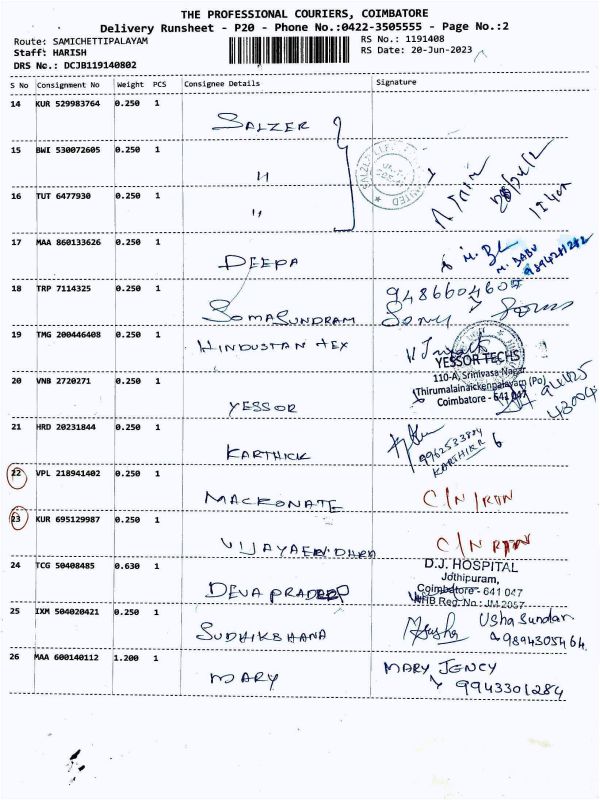 THE PROFESSIONAL COURIERS, COIMBATORE
Delivery Runsheet - P20 - Phone No.:0422-3505555 - Page No.:2
Route: SAMICHETTIPALAYAM RS No.: 1191408
Staff: HARISH RS Date: 20-Jun-2023
DRS No.: DCJB119140802
S No Consignment No Weight PCS Consignee Details Signature
14 KUR 529983764 0.250 1 SALZER
15 BWI 530072605 0.250 1 "
16 TUT 6477930 0.250 1 "
17 MAA 860133626 0.250 1 DEEPA M. BABU
18 TRP 7114325 0.250 1 SOMASUNDRAM 9486604607
19 TMG 200446408 0.250 1 HINDUSTAN TEX
20 VNB 2720271 0.250 1 YESSOR YESSOR TECHS
110-A, Srinivasa Nagar,
Thirumalainaickenpalayam (Po)
Coimbatore - 641 047
21 HRD 20231844 0.250 1 KARTHICK KARTHIKR
22 VPL 218941402 0.250 1 MACKONATE C/N RTN
23 KUR 695129987 0.250 1 C/N RTN
24 TCG 50408485 0.630 1 DEVA PRADEEP D.J. HOSPITAL
Jothipuram,
Coimbatore - 641 047
Reg. No : JM 2057
25 IXM 504020421 0.250 1 SUDHIKSHANA Usha Sundar
9894305464
26 MAA 600140112 1.200 1 MARY MARY JENCY
9943301284